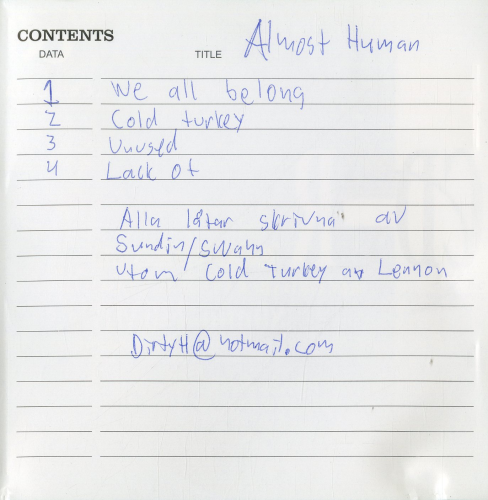 CONTENTS
DATA TITLE Almost Human
1 We all belong
2 Cold turkey
3 Unused
4 Lack of
Alla låtar skrivna av
Sundin/Swahn
utom Cold Turkey av Lennon
DirtyH@hotmail.com